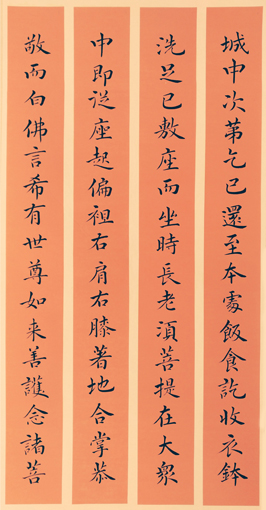 城中次第乞已還至本處飯食訖收衣鉢
洗足已敷座而坐時長老須菩提在大眾
中即從座起偏袒右肩右膝著地合掌恭
敬而白佛言希有世尊如来善護念諸菩